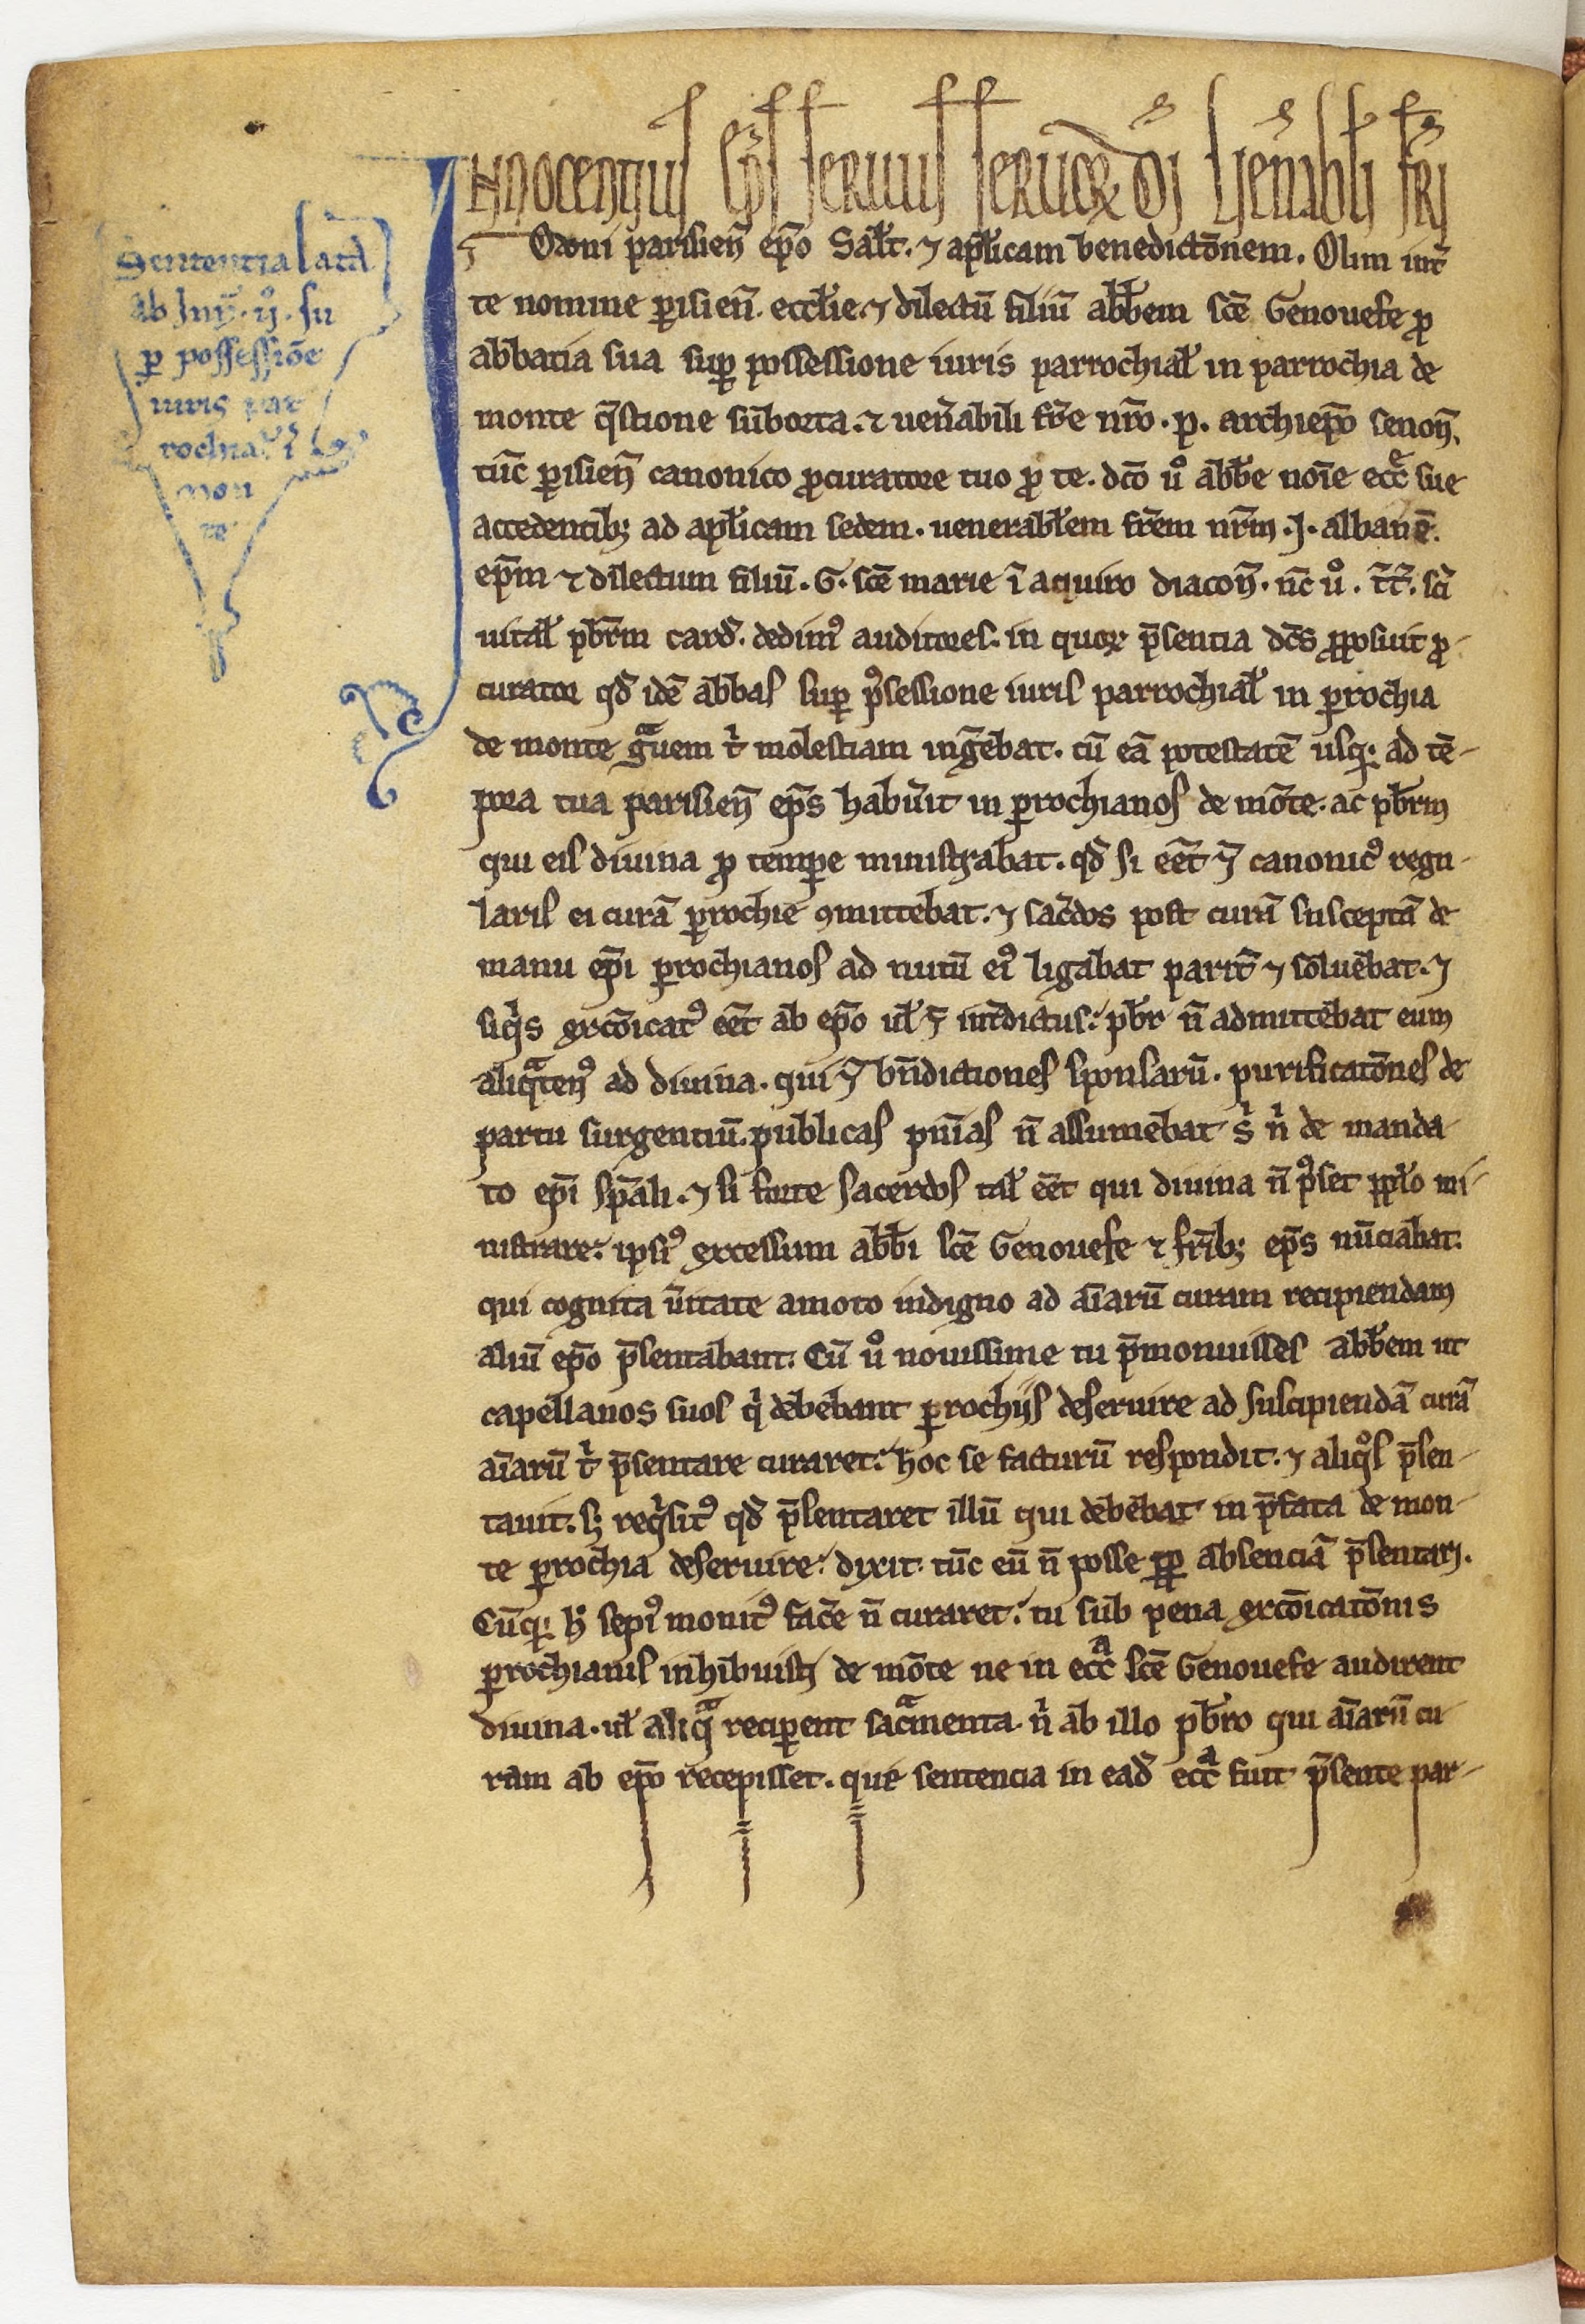 Sententia lata
ab Inn̄. ıȷ. su
ꝑ possessiōe
iuris par
rochial̛ ī
mon
te
Innocentius ep̄s seruus seruoꝝ dī Uen̄abili fr̄i
Odoni parisień ep̄o Sal̄t. ⁊ ap̄licam benedictōnem. Olim int̄
te nomine ꝑisień. eccl̄ie. ⁊ dilectū filiū abb̄em sc̄e Genouefe ꝓ
abbatia sua suꝑ possessione iuris parrochial̄ in parrochia de
monte q̄stione suborta. ⁊ uen̄abili fr̄e nr̄o. p. archiep̄o senoń.
tūc ꝑisień canonico ꝓcuratore tuo ꝓ te. dc̄o ů abb̄e noīe ecc̄a sue
accedentibꝫ ad ap̄licam sedem. uenerabl̄em fr̄em nr̄m .J. albanē.
ep̄m ⁊ dilectum filiū. G. sc̄e marie ī aquiro diacoń. nc̄ ů. t̄t̄. sc̄i
uital̄ pb̄rm card̄. dedimꝰ auditores. in quoꝝ p̄sentia dc̄s ꝓposuit ꝓ-
curator qd̄ idē abbas suꝑ p̾sessione iuris parrochial̄ in ꝑrochia
de monte gᵃuem t̄ molestiam ing̾ebat. cū eā potestatē usqꝫ ad tē-
pora tua parisień ep̄s habu̾it in ꝑrochianos de mōte. ac pb̄rm
qui eis diuina ꝓ tempe ministrabat. qd̄ si eēt ⁊ canonicꝰ regu-
laris ei curā ꝑrochie ꝯmittebat. ⁊ sac̾dos post curā susceptā de
manu ep̄i ꝑrochianos ad nutū eiꝰ ligabat parit̾ ⁊ soluebat. ⁊
siq̇s excōicatꝰ eēt ab ep̄o ul̄ ⁊ int̾dictus: pb̄r n̄ admittebat eum
aliqᵃtenꝰ ad diuina. qui ⁊ bn̄dictiones sponsarū. purificatōnes de
partu surgentiū. publicas pn̄ias n̄ assumebat s̄ n̄ de manda-
to ep̄i sp̄ali. ⁊ si forte sacerdos tal̄ eēt qui diuina n̄ p̾set ꝓp̾o mi-
nistrare: ipsiꝰ excessum abb̄i sc̄e Genouefe ⁊ fr̄ibꝫ ep̄s nūciabat.
qui cognita u̾itate amoto indigno ad aīarū curam recipiendam
aliū ep̄o p̄sentabant. Cū ů nouissime tu p̄monuisses abb̄em ut
capellanos suos q̇ debebant ꝑrochijs deseruire ad suscipiendā curā
aīarū t̄ p̄sentare curaret: hoc se facturū respondit. ⁊ aliqͦs p̄sen-
tauit. sꝫ req̇sitꝰ qd̄ p̄sentaret illū qui debebat in p̄fata de mon-
te ꝑrochia deseruire: dixit tūc eū n̄ posse ꝓꝑ absenciā p̄sentari.
Cūqꝫ h̄ sepiꝰ monitꝰ fac̄e n̄ curaret: tu sub pena excōicatōnis
ꝑrochianis inhibuisti de mōte ne in ecc̄a sc̄e Genouefe audirent
diuina. ul̄ aliqᵃ reciꝑent sacᵃmenta. n̄ ab illo pb̄ro qui aīarū cu-
ram ab ep̄o recepisset. que sentencia in ead̄ ecc̄a fuit p̄sente par-